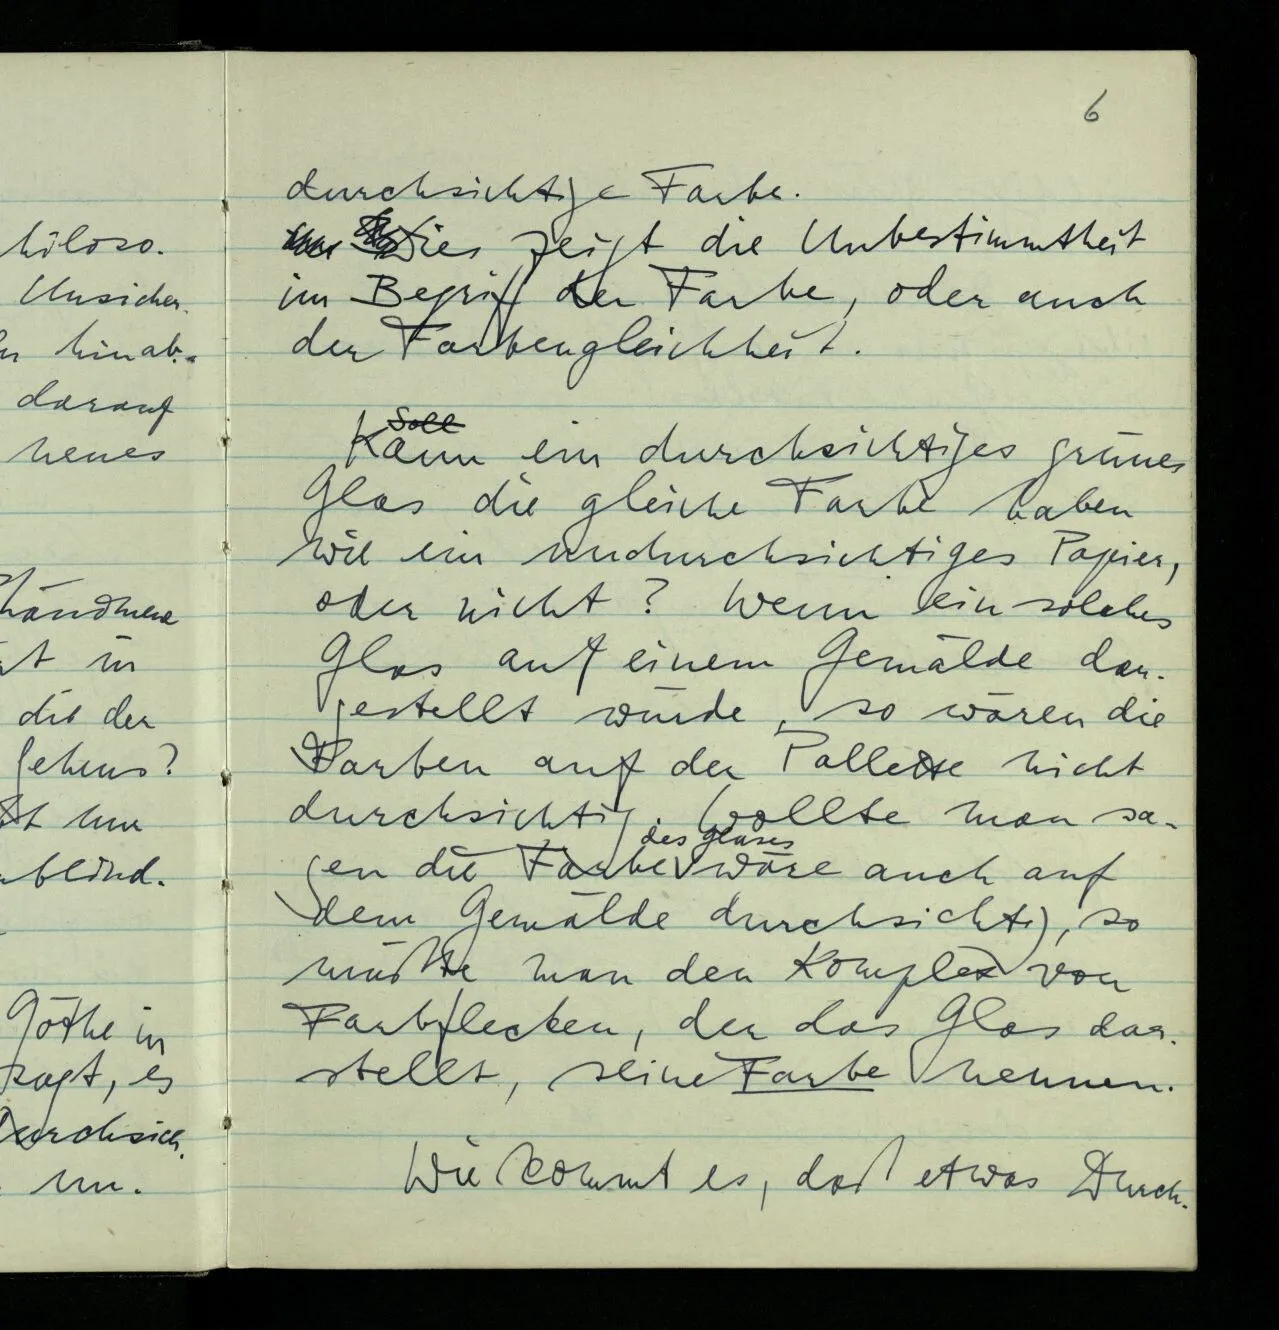 hiloso.
Unsicher.
hinab-
darauf
neues
in
die der
Sehens?
nur
blind.
Göthe in
sagt, es
Durchsich.
un.
6
durchsichtige Farbe.
Dies zeigt die Unbestimmtheit
im Begriff der Farbe, oder auch
der Farbengleichheit.
Soll
Kann ein durchsichtiges grünes
Glas die gleiche Farbe haben
wie ein undurchsichtiges Papier,
oder nicht? Wenn ein solches
Glas auf einem Gemälde dar-
gestellt würde, so wären die
Farben auf der Pallette nicht
durchsichtig. Wollte man sa-
des Glases
gen die Farbe wäre auch auf
dem Gemälde durchsichtig, so
müßte man den Komplex von
Farbflecken, der das Glas dar-
stellt, seine Farbe nennen.
Wie kommt es, daß etwas Durch-